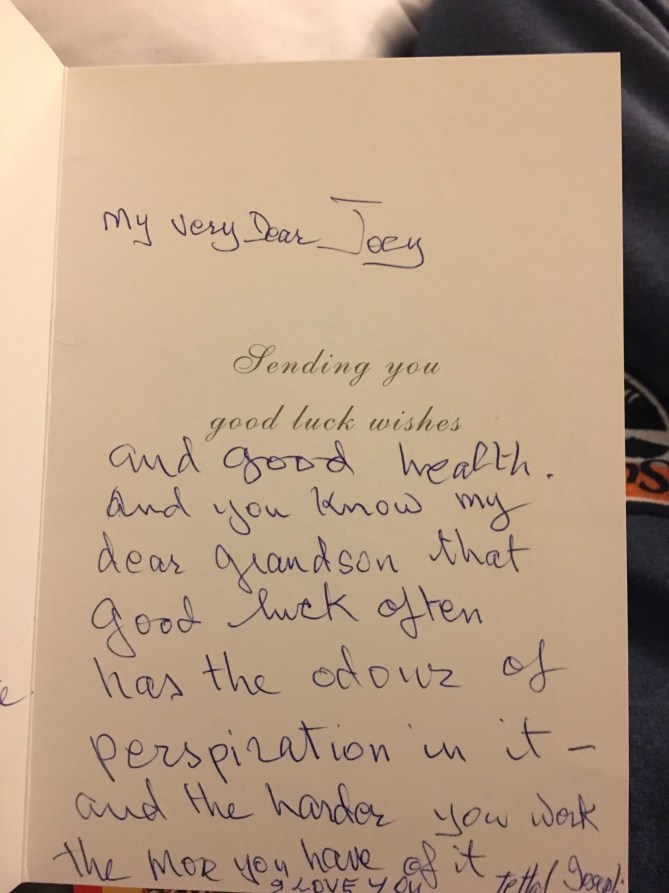 My very Dear Joey
Sending you
good luck wishes
and good health.
And you know my
dear grandson that
good luck often
has the odour of
perspiration in it -
and the harder you work
the mor you have of it
I LOVE YOU